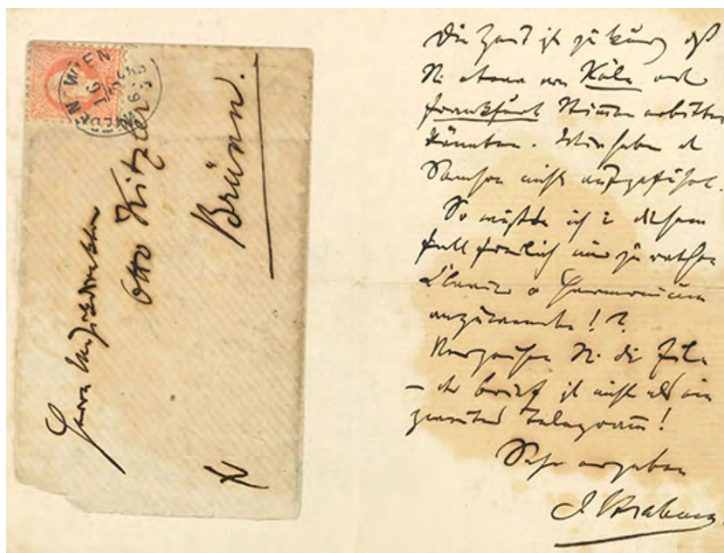 WIEDEN WIEN
Herrn Musikdirektor
Otto Kitzler
Brünn.
Die Zeit ist zu kurz daß
S. etwa von Köln od
Frankfurt Stimmen erbitten
könnten. Wir haben d
Samson nicht aufgeführt.
So wüßte ich i diesem
Fall freilich nur zu rathen
Clavier o Harmonium
anzuwenden!?
Verzeihen S. die Eile
– d Brief ist nicht als ein
zweites Telegramm!
Sehr ergeben
J. Brahms